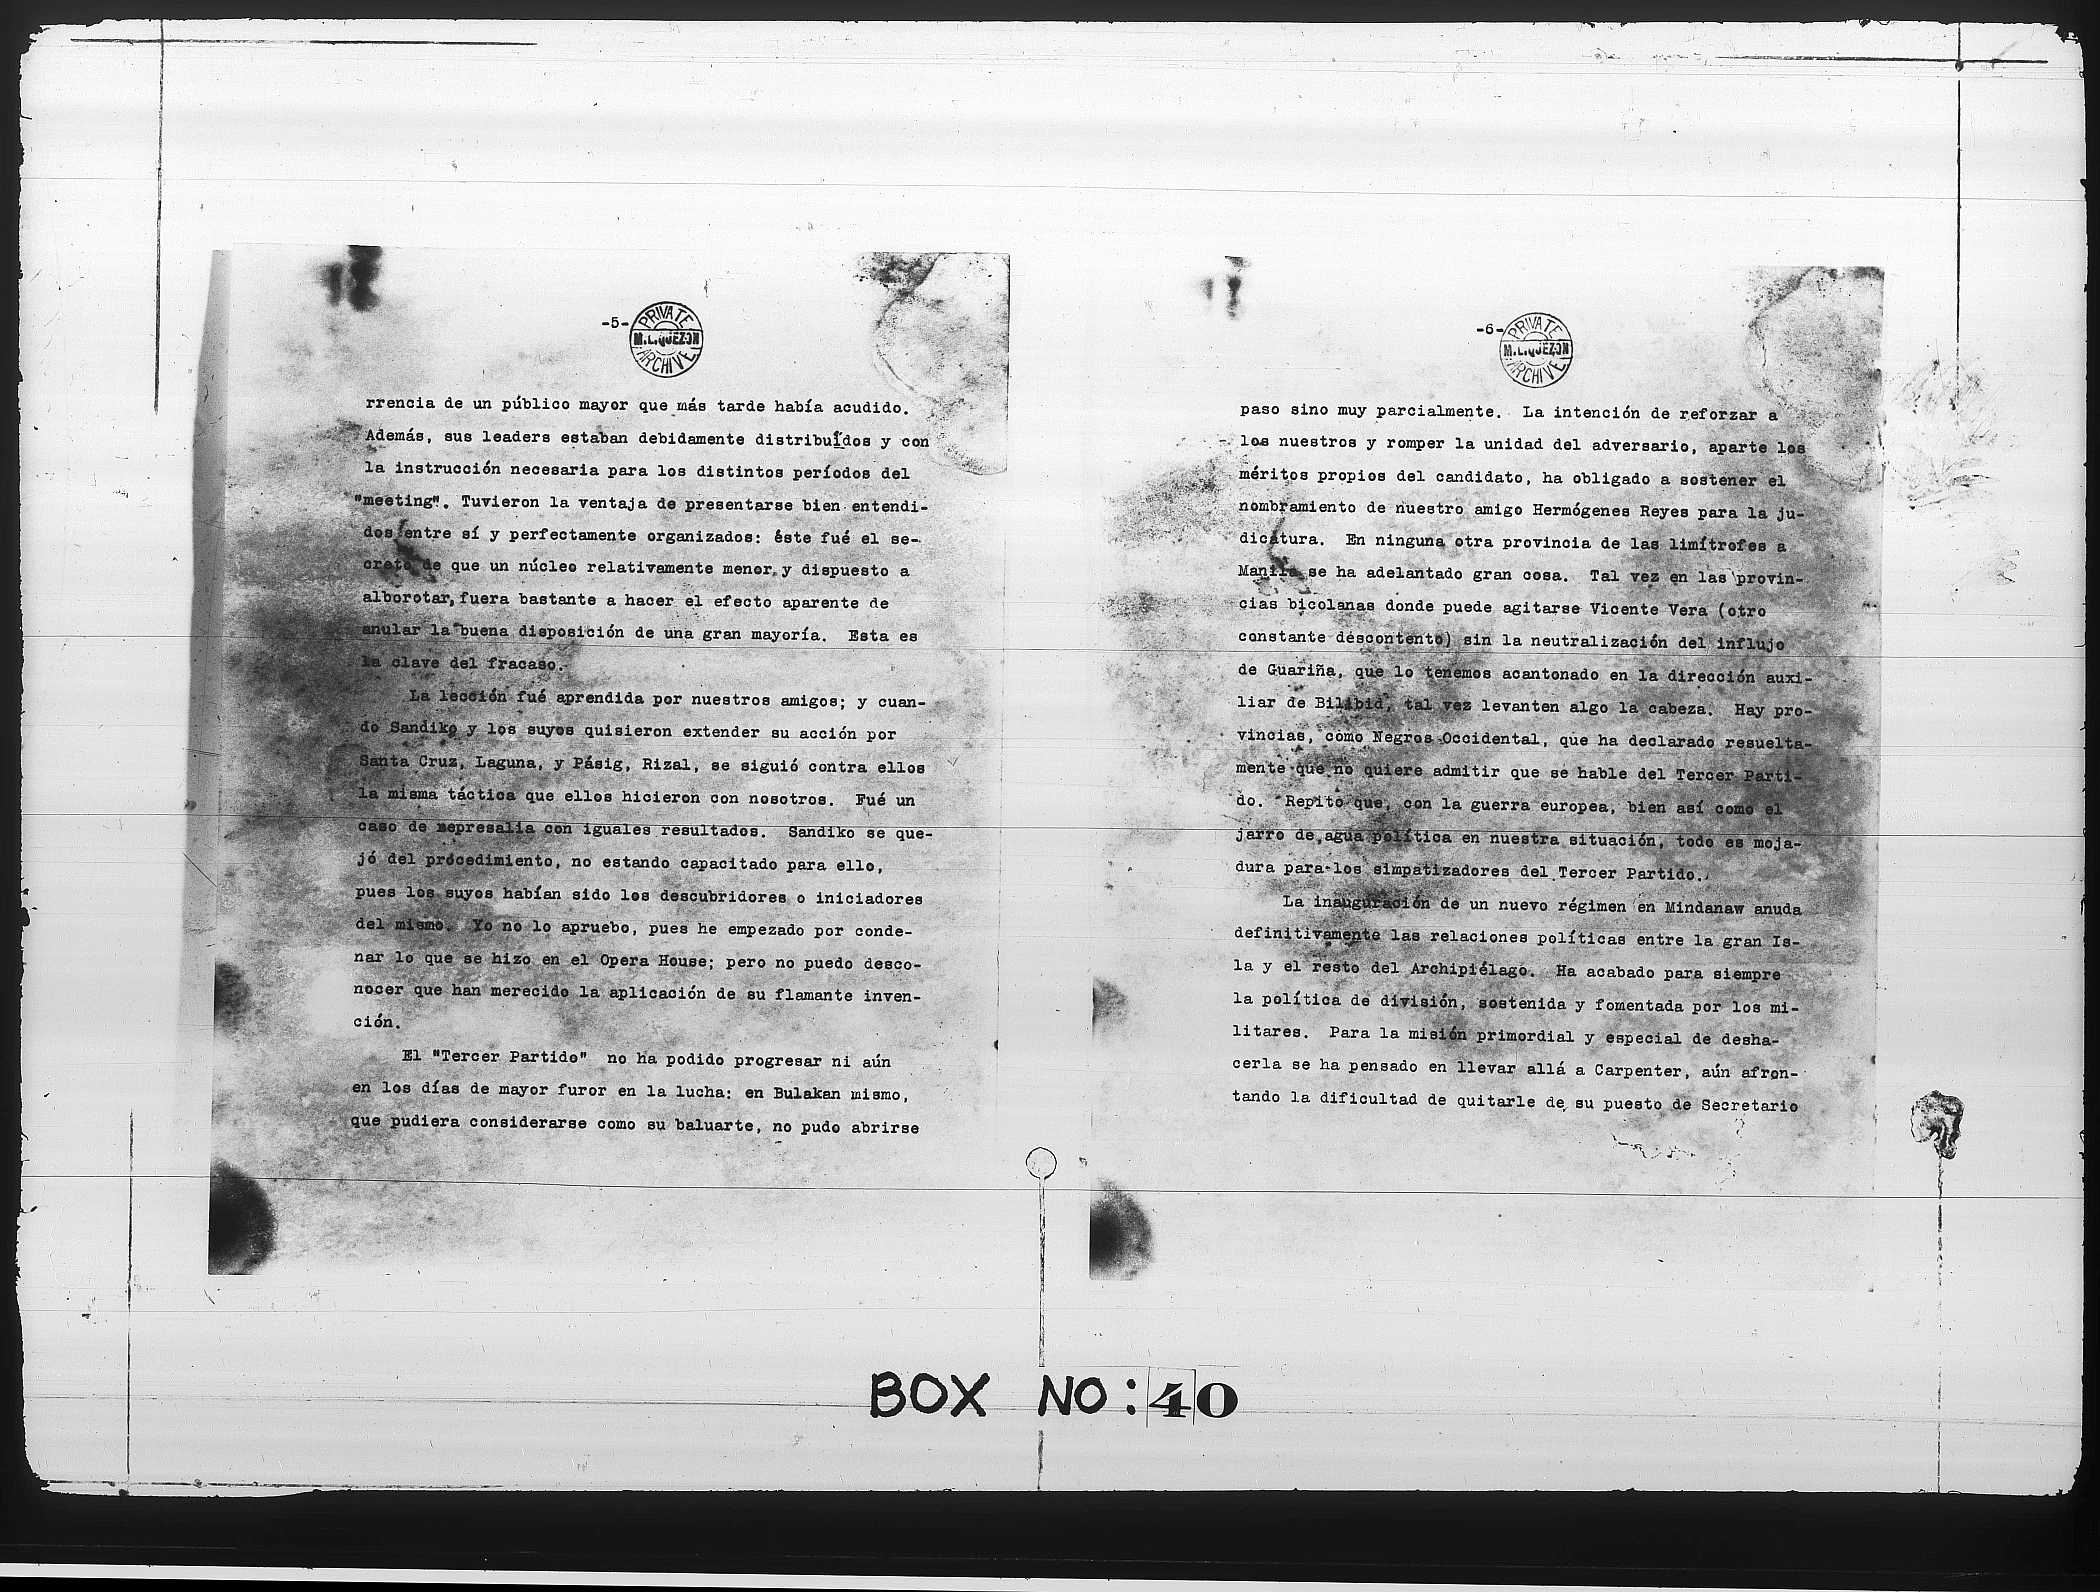 -5-
PRIVATE
M.L.QUEZON
ARCHIVE
rrencia de un público mayor que más tarde había acudido.
Además, sus leaders estaban debidamente distribuídos y con
la instrucción necesaria para los distintos períodos del
"meeting". Tuvieron la ventaja de presentarse bien entendi-
dos entre sí y perfectamente organizados: éste fué el se-
creto de que un núcleo relativamente menor, y dispuesto a
alborotar, fuera bastante a hacer el efecto aparente de
anular la buena disposición de una gran mayoría. Esta es
la clave del fracaso.
La lección fué aprendida por nuestros amigos; y cuan-
do Sandiko y los suyos quisieron extender su acción por
Santa Cruz, Laguna, y Pásig, Rizal, se siguió contra ellos
la misma táctica que ellos hicieron con nosotros. Fué un
caso de represalia con iguales resultados. Sandiko se que-
jó del procedimiento, no estando capacitado para ello,
pues los suyos habían sido los descubridores o iniciadores
del mismo. Yo no lo apruebo, pues he empezado por conde-
nar lo que se hizo en el Opera House; pero no puedo desco-
nocer que han merecido la aplicación de su flamante inven-
ción.
El "Tercer Partido" no ha podido progresar ni aún
en los días de mayor furor en la lucha: en Bulakan mismo,
que pudiera considerarse como su baluarte, no pudo abrirse
-6-
PRIVATE
M.L.QUEZON
ARCHIVE
paso sino muy parcialmente. La intención de reforzar a
los nuestros y romper la unidad del adversario, aparte los
méritos propios del candidato, ha obligado a sostener el
nombramiento de nuestro amigo Hermógenes Reyes para la ju-
dicatura. En ninguna otra provincia de las limítrofes a
Manila se ha adelantado gran cosa. Tal vez en las provin-
cias bicolanas donde puede agitarse Vicente Vera (otro
constante descontento) sin la neutralización del influjo
de Guariña, que lo tenemos acantonado en la dirección auxi-
liar de Bilibid, tal vez levanten algo la cabeza. Hay pro-
vincias, como Negros Occidental, que ha declarado resuelta-
mente que no quiere admitir que se hable del Tercer Parti-
do. Repito que, con la guerra europea, bien así como el
jarro de agua política en nuestra situación, todo es moja-
dura para los simpatizadores del Tercer Partido.
La inauguración de un nuevo régimen en Mindanaw anuda
definitivamente las relaciones políticas entre la gran Is-
la y el resto del Archipiélago. Ha acabado para siempre
la política de división, sostenida y fomentada por los mi-
litares. Para la misión primordial y especial de desha-
cerla se ha pensado en llevar allá a Carpenter, aún afron-
tando la dificultad de quitarle de su puesto de Secretario
BOX NO: 40